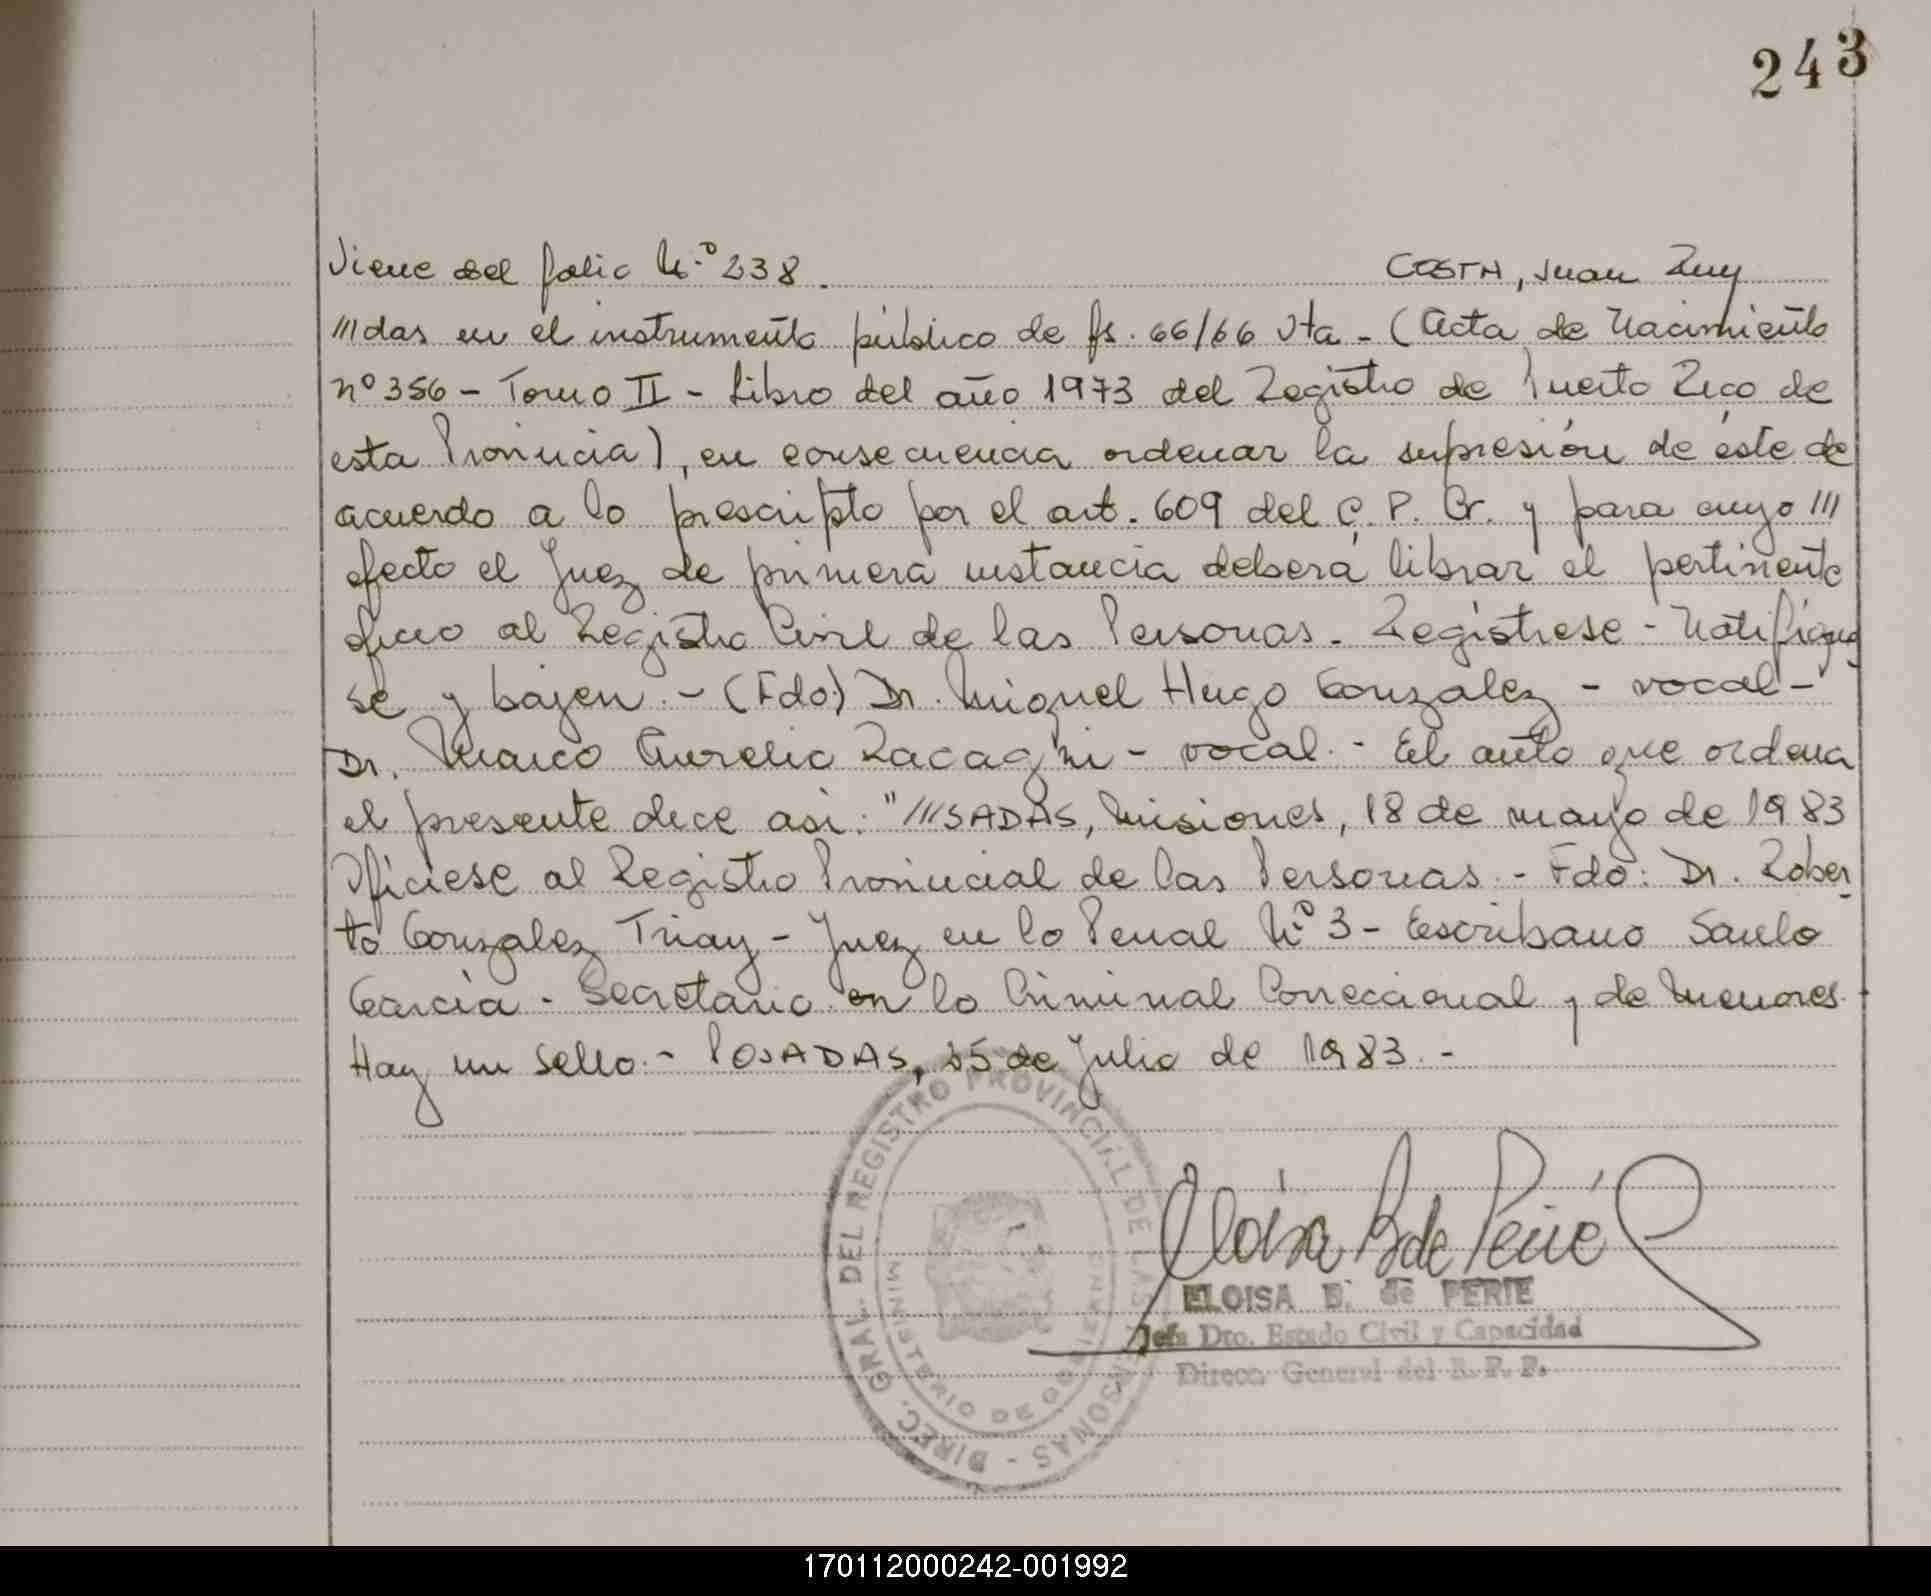 243
Viene del folio N.º 238. COSTA, Juan Ruy
///das en el instrumento público de fs. 66/66 vta - (Acta de Nacimiento
nº 356 - Tomo II - Libro del año 1973 del Registro de Puerto Rico de
esta Provincia), en consecuencia ordenar la supresión de éste de
acuerdo a lo prescripto por el art. 609 del C. P. Cr. y para cuyo ///
efecto el Juez de primera instancia deberá librar el pertinente
oficio al Registro Civil de las Personas. Regístrese - Notifíque
se y bajen. - (Fdo) Dr. Miguel Hugo Gonzalez - vocal -
Dr. Marco Aurelio Racagni - vocal. - El auto que ordena
el presente dice asi: "///SADAS, Misiones, 18 de mayo de 1983
Ofíciese al Registro Provincial de las Personas. - Fdo: Dr. Rober_
to Gonzalez Triay - Juez en lo Penal N.º 3 - Escribano Saulo
García - Secretario en lo Criminal Correccional y de Menores.
Hay un sello. - POSADAS, 15 de Julio de 1983. -
DIREC. GRAL. DEL REGISTRO PROVINCIAL DE LAS PERSONAS -
MINISTERIO DE GOBIERNO
Eloisa B de Perié
ELOISA B. de PERIE
Jefa Dto. Estado Civil y Capacidad
Direcc. General del R. P. P.
170112000242-001992